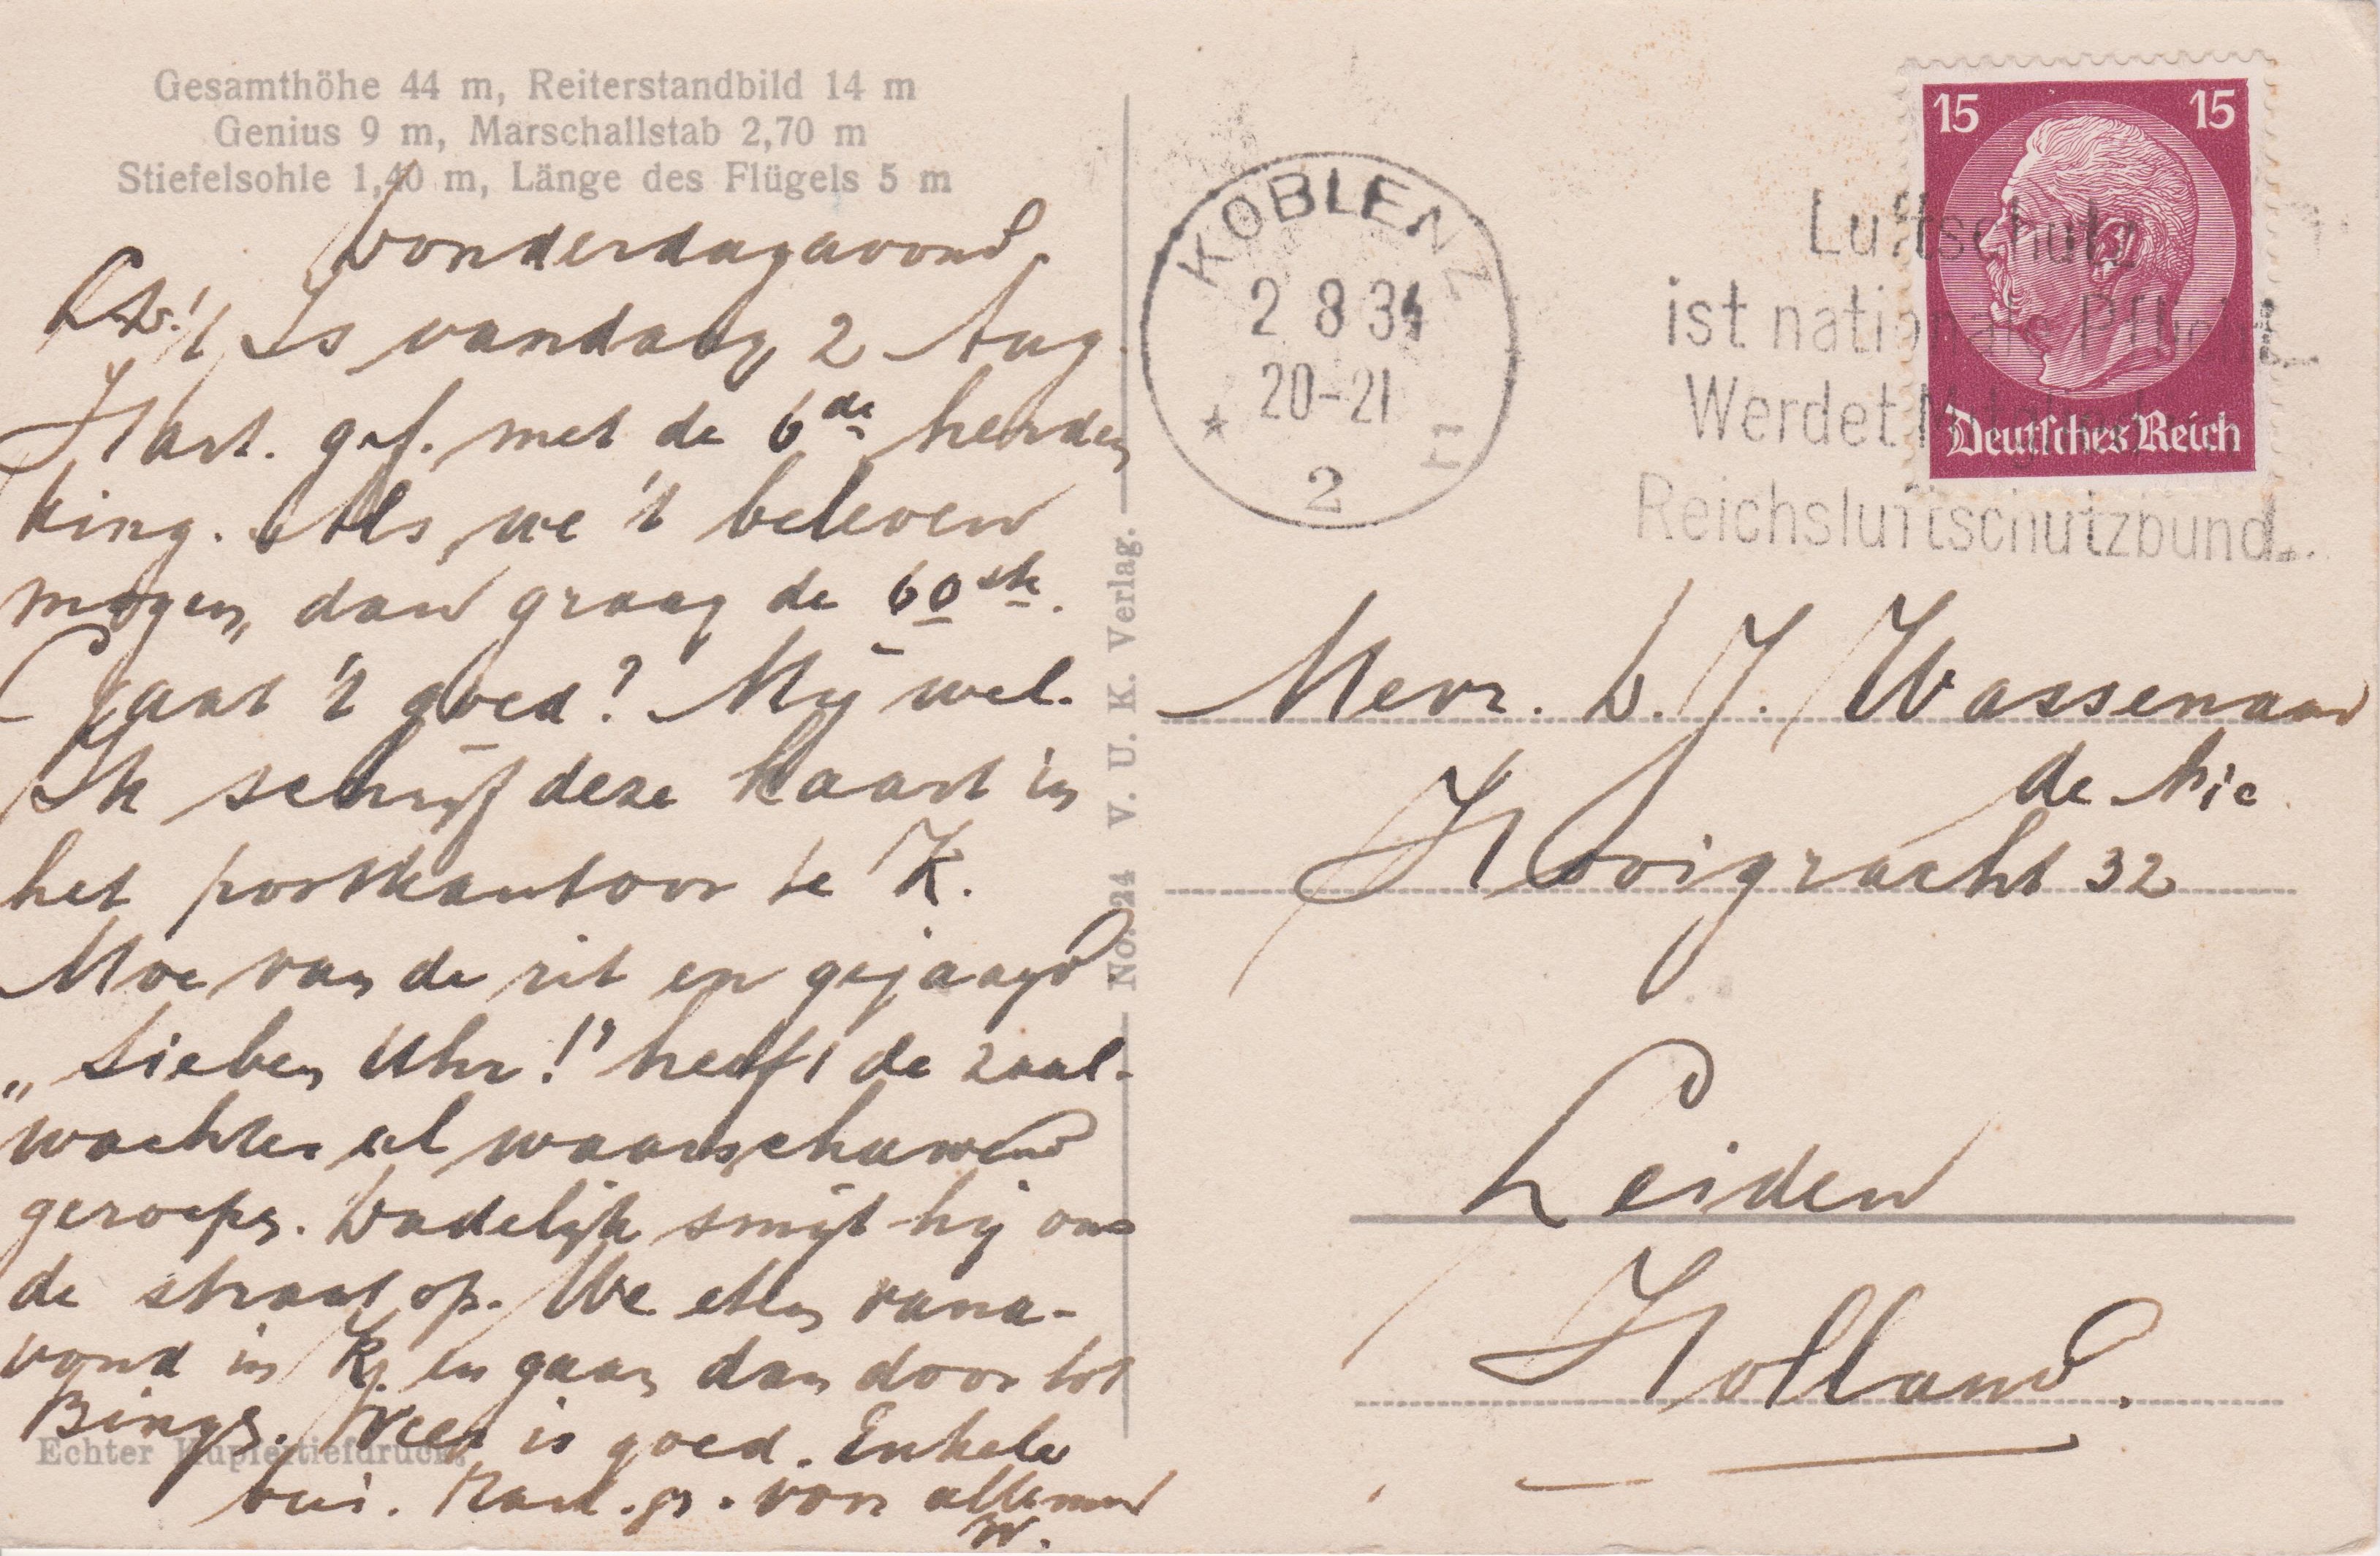 Gesamthöhe 44 m, Reiterstandbild 14 m
Genius 9 m, Marschallstab 2,70 m
Stiefelsohle 1,40 m, Länge des Flügels 5 m
Donderdagavond.
't Is vandaag 2 Aug.
Hart. gef. met de 6de herden
king. Als we 't beleven
mogen, dan graag de 60ste.
Gaat 't goed? Mij wel.
Ik schrijf deze kaart in
het postkantoor te K.
Moe van de rit en gejaagd
„Sieben Uhr!" heeft de zaal-
wachter al waarschuwend
geroepen. Dadelijk smijt hij ons
de straat op. We eten vana-
vond in K. en gaan dan door tot
Bingen. Weer is goed. Enkele
bui. Hart. gr. voor allemaal
W.
Echter Kupfertiefdruck.
No. 24 V. U. K. Verlag.
KOBLENZ
2 8 34
20-21
2
Luftschutz
ist nationale Pflicht
Werdet Mitglied
Reichsluftschutzbund
15 15
Deutsches Reich
Mevr. D. J. Wassenaar
de Bie
Hooigracht 32
Leiden
Holland.